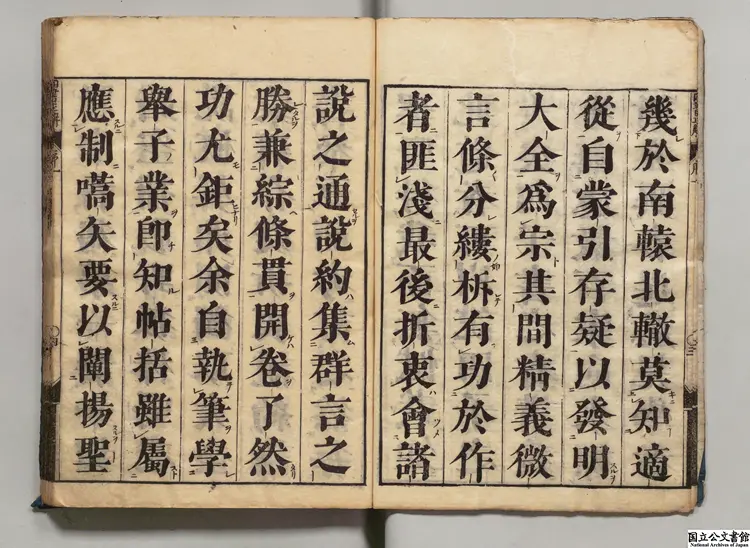 幾於南轅北轍莫知適
從自蒙引存疑以發明
大全爲宗其間精義微
言條分縷析有功於作
者匪淺最後折衷會諸
說之通說約集群言之
勝兼綜條貫開卷了然
功尤鉅矣余自執筆學
舉子業卽知帖括雖屬
應制嚆矢要以闡揚聖
国立公文書館
National Archives of Japan